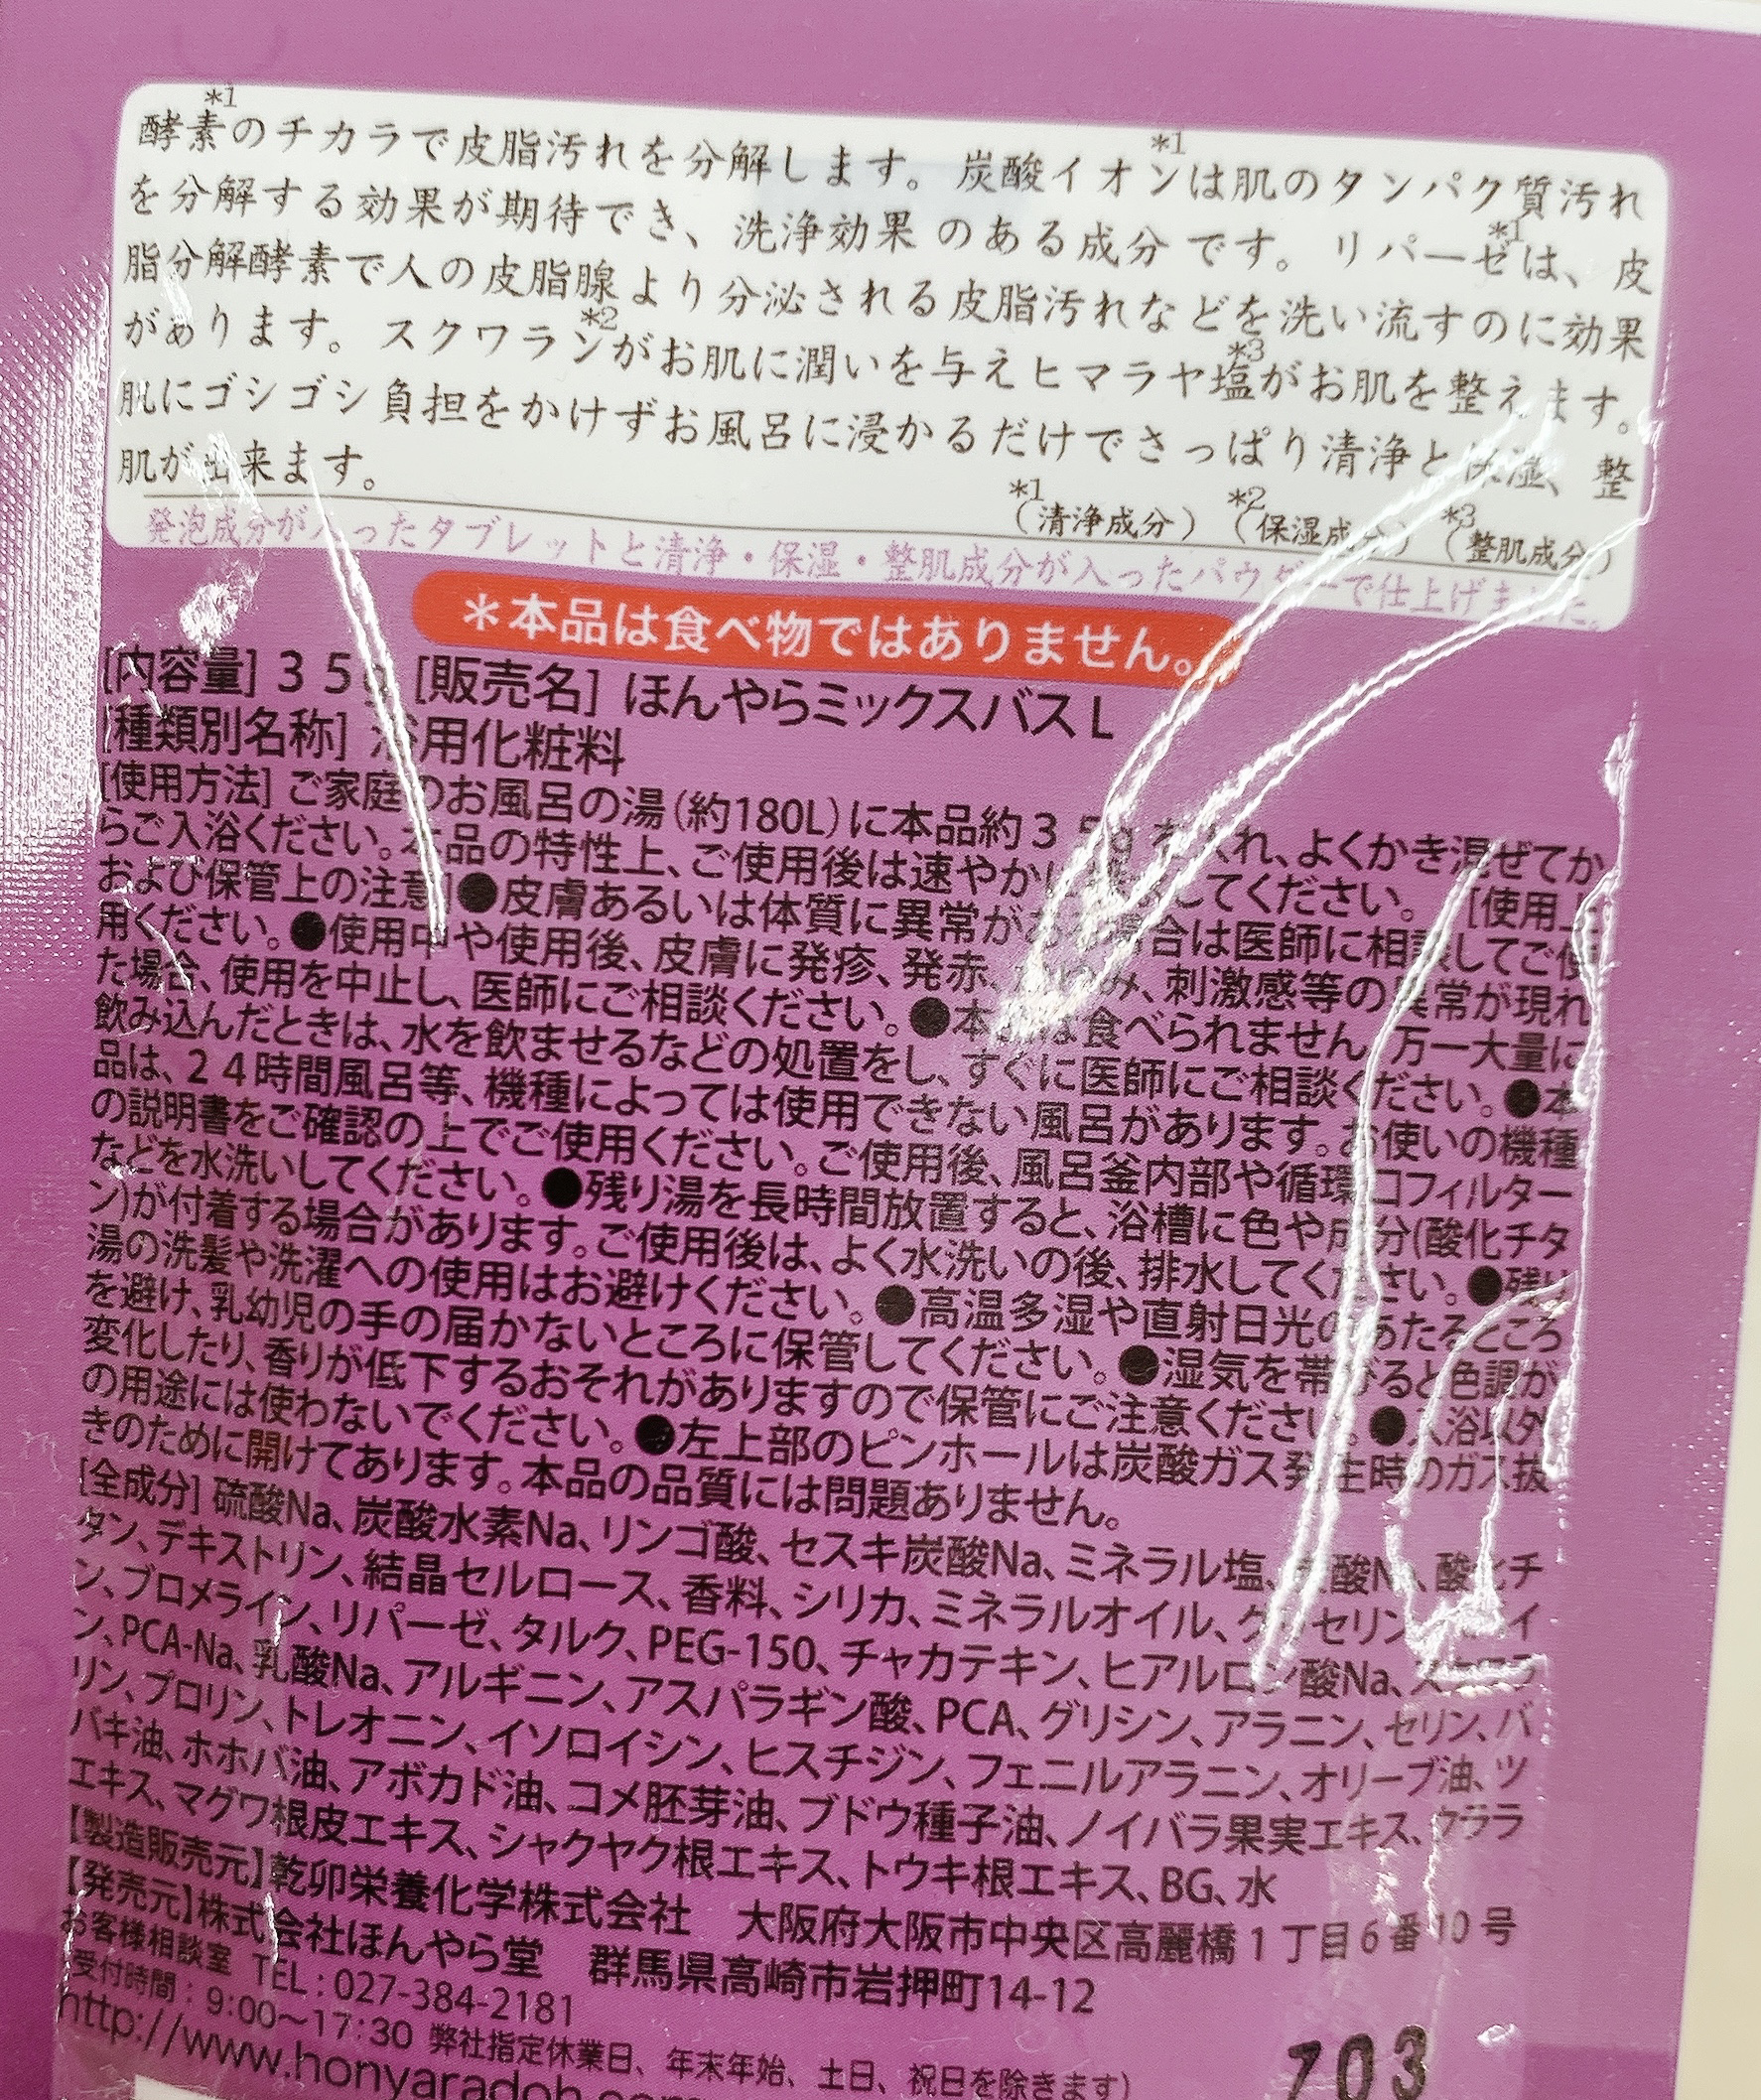 酵素*1のチカラで皮脂汚れを分解します。炭酸イオン*1は肌のタンパク質汚れ
を分解する効果が期待でき、洗浄効果のある成分です。リパーゼ*1は、皮
脂分解酵素で人の皮脂腺より分泌される皮脂汚れなどを洗い流すのに効果
があります。スクワラン*2がお肌に潤いを与えヒマラヤ塩*3がお肌を整えます。
肌にゴシゴシ負担をかけずお風呂に浸かるだけでさっぱり清浄と保湿、整
肌が出来ます。
*1(清浄成分) *2(保湿成分) *3(整肌成分)
発泡成分が入ったタブレットと清浄・保湿・整肌成分が入ったパウダーで仕上げました。
*本品は食べ物ではありません。
[内容量]35g [販売名]ほんやらミックスバスL
[種類別名称]浴用化粧料
[使用方法]ご家庭のお風呂の湯(約180L)に本品約35gを入れ、よくかき混ぜてか
らご入浴ください。本品の特性上、ご使用後は速やかに してください。 [使用上
および保管上の注意]●皮膚あるいは体質に異常がある場合は医師に相談してご使
用ください。●使用中や使用後、皮膚に発疹、発赤、かゆみ、刺激感等の異常が現れ
た場合、使用を中止し、医師にご相談ください。●本品は食べられません。万一大量に
飲み込んだときは、水を飲ませるなどの処置をし、すぐに医師にご相談ください。●本
品は、24時間風呂等、機種によっては使用できない風呂があります。お使いの機種
の説明書をご確認の上でご使用ください。ご使用後、風呂釜内部や循環口フィルター
などを水洗いしてください。●残り湯を長時間放置すると、浴槽に色や成分(酸化チタ
ン)が付着する場合があります。ご使用後は、よく水洗いの後、排水してください。●残り
湯の洗髪や洗濯への使用はお避けください。●高温多湿や直射日光のあたるところ
を避け、乳幼児の手の届かないところに保管してください。●湿気を帯びると色調が
変化したり、香りが低下するおそれがありますので保管にご注意ください。●入浴以外
の用途には使わないでください。●左上部のピンホールは炭酸ガス発生時のガス抜
きのために開けてあります。本品の品質には問題ありません。
[全成分]硫酸Na、炭酸水素Na、リンゴ酸、セスキ炭酸Na、ミネラル塩、炭酸Na、酸化チ
タン、デキストリン、結晶セルロース、香料、シリカ、ミネラルオイル、グリセリン、 イ
ン、ブロメライン、リパーゼ、タルク、PEG-150、チャカテキン、ヒアルロン酸Na、スクワラ
ン、PCA-Na、乳酸Na、アルギニン、アスパラギン酸、PCA、グリシン、アラニン、セリン、バ
リン、プロリン、トレオニン、イソロイシン、ヒスチジン、フェニルアラニン、オリーブ油、ツ
バキ油、ホホバ油、アボカド油、コメ胚芽油、ブドウ種子油、ノイバラ果実エキス、クララ
エキス、マグワ根皮エキス、シャクヤク根エキス、トウキ根エキス、BG、水
【製造販売元】乾卯栄養化学株式会社 大阪府大阪市中央区高麗橋1丁目6番10号
【発売元】株式会社ほんやら堂 群馬県高崎市岩押町14-12
お客様相談室 TEL:027-384-2181
受付時間:9:00〜17:30 弊社指定休業日、年末年始、土日、祝日を除きます)
http://www.honyaradoh.com
703